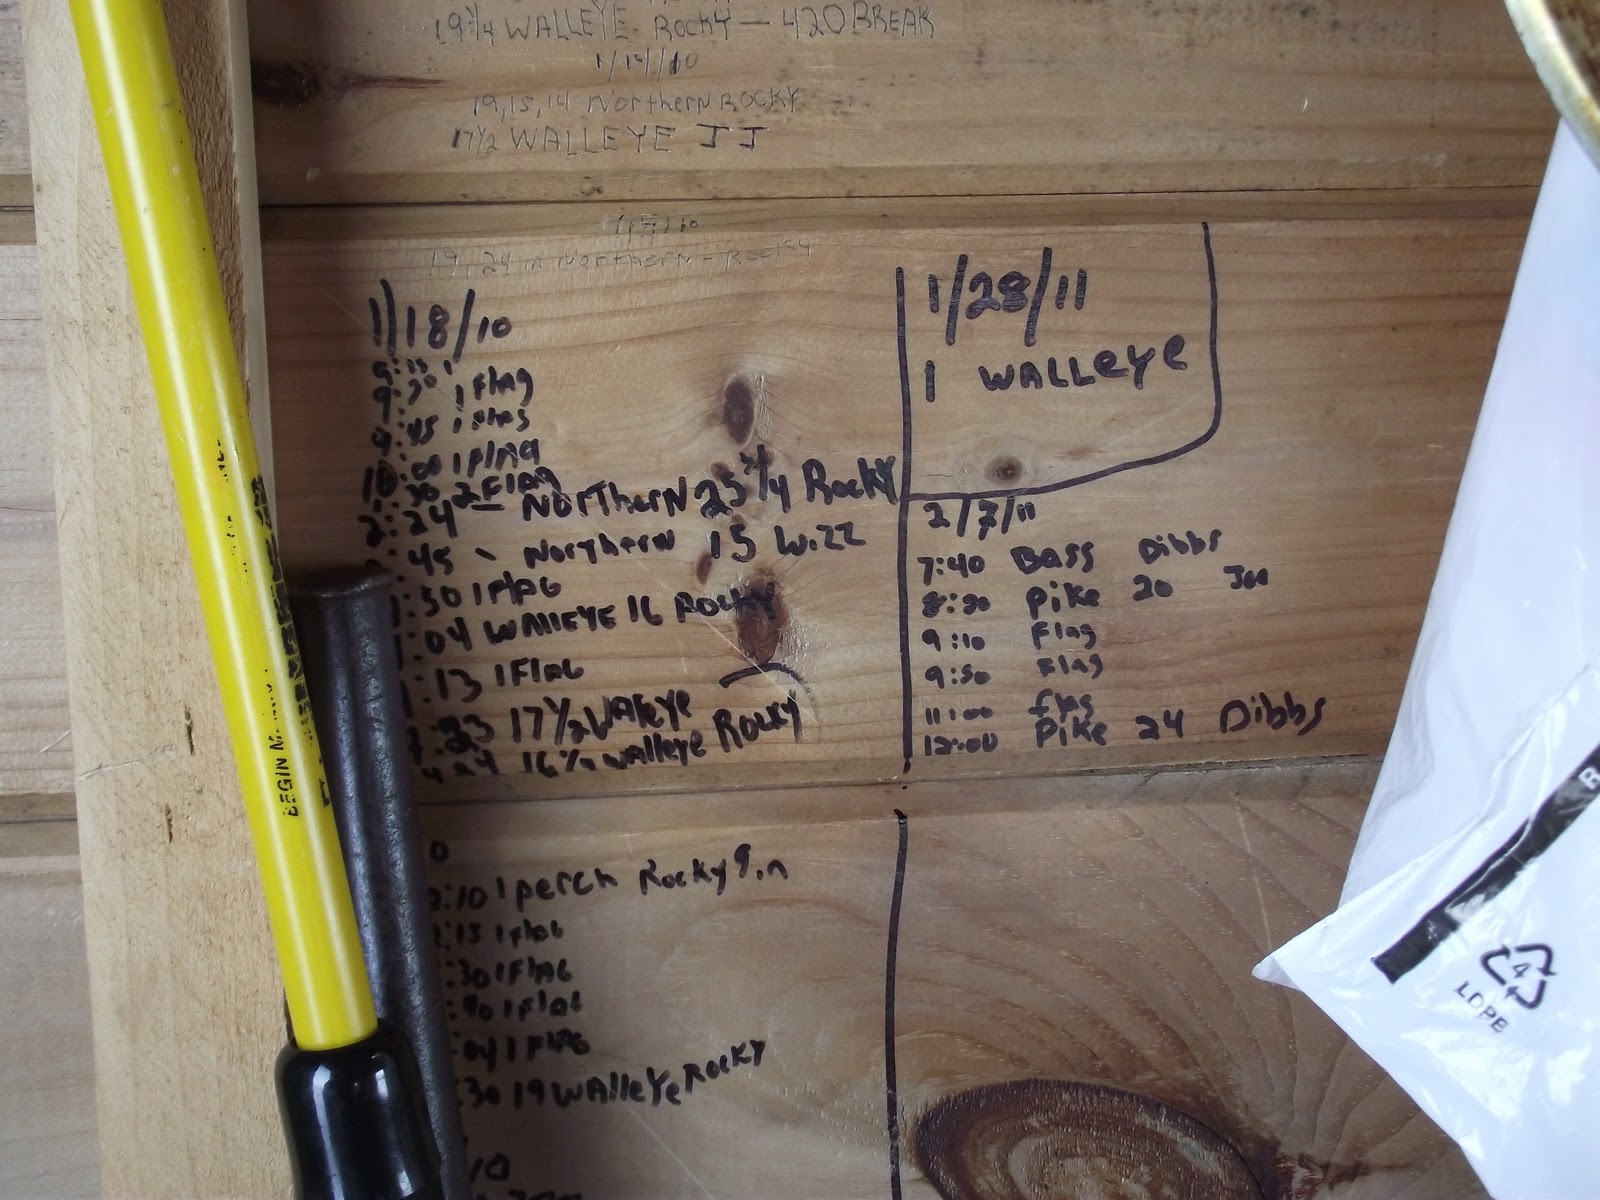 19 3/4 WALLEYE ROCKY — 420 BREAK
1/14/10
19, 15, 14 Northern ROCKY
17 1/2 WALLEYE JJ
1/15/10
19, 24 in Northern - Rocky
1/18/10
9:15 1
1 Flag
9:45 1 Flag
10:00 1 Flag
10:30 2 Flag
2:24 — NorTherN 25 3/4 Rocky
:45 - Northern 15 Wizz
:50 1 FlAG
:04 WAllEYE 16 Rocky
:13 1 FlAG
:23 17 1/2 WAlleye
16 1/2 walleye Rocky
0
:10 1 perch Rocky 9 in
:15 1 flag
:30 1 FlAG
:40 1 Flag
:04 1 FlAG
:30 19 WAlleYe ROCKY
10
1/28/11
1 WALLeYe
2/7/11
7:40 Bass Dibbs
8:30 Pike 20 Joe
9:10 Flag
9:50 Flag
11:00 flag
12:00 Pike 24 Dibbs
BEGIN
4
LDPE
R